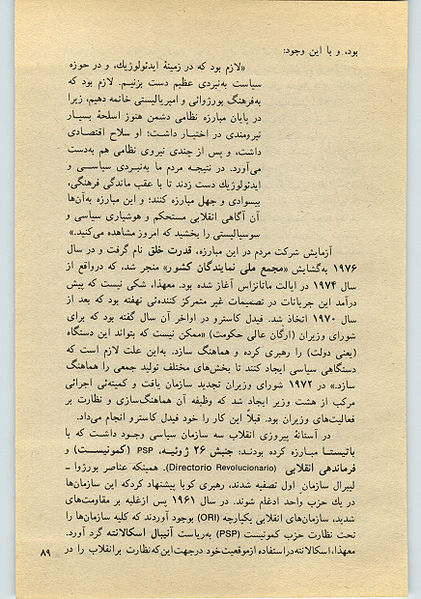 بود، و با این وجود:
«لازم بود که در زمینهٔ ایدئولوژیك، و در حوزه
سیاست به‌نبردی عظیم دست بزنیم. لازم بود که
به‌فرهنگ بورژوائی و امپریالیستی خاتمه دهیم، زیرا
در پایان مبارزه نظامی دشمن هنوز اسلحهٔ بسیار
نیرومندی در اختیار داشت؛ او سلاح اقتصادی
داشت، و پس از چندی نیروی نظامی هم به‌دست
می‌آورد. در نتیجـه مردم ما به‌نبـردی سیاسـی و
ایدئولوژیك دست زدند تا با عقب ماندگی فرهنگی،
بیسوادی و جهل مبارزه کنند؛ و این مبارزه به‌آن‌ها
آن آگاهی انقلابی مستحکم و هوشیاری سیاسی و
سوسیالیستی را بخشید که امروز مشاهده می‌کنید.»
آزمایش شرکت مردم در این مبارزه، قدرت خلق نام گرفت و در سال
۱۹۷۶ به‌گشایش «مجمع ملی نمایندگان کشور» منجر شد، که درواقع از
سال ۱۹۷۴ در ایالت ماتانزاس آغاز شده بود. معهذا، شکی نیست که پیش
درآمد این جریانات در تصمیمات غیر متمرکز کننده‌ئی نهفته بود که بعد از
سال ۱۹۷۰ اتخاذ شد. فیدل کاسترو در اواخر آن سال گفته بود که برای
شورای وزیران (ارگان عالی حکومت) «ممکن نیست که بتواند این دستگاه
(یعنی دولت) را رهبری کرده و هماهنگ سازد. به‌این علت لازم است که
دستگاهی سیاسی ایجاد کنند تا بخش‌های مختلف تولید جمعی را هماهنگ
سازد.» در ۱۹۷۲ شورای وزیران تجدید سازمان یافت و کمیته‌ئی اجرائی
مرکب از هشت وزیر ایجاد شد که وظیفه آن هماهنگ‌سازی و نظارت بر
فعالیت‌های وزیران بود. قبلاً این کار را خود فیدل کاسترو انجام می‌داد.
در آستانهٔ پیروزی انقلاب سه سازمان سیاسی وجـود داشـت که با
باتیستـا مبـارزه کرده بودنـد: جنبش ۲۶ ژوئیـه، PSP (کمونیست) و
فرماندهی انقلابی (Directorio Revolucionario). همینکه عناصر بورژوا ـ
لیبرال سازمان اول تصفیه شدند، رهبری کوبا پیشنهاد کردکه این سازمان‌ها
در یك حزب واحد ادغام شوند. در سال ۱۹۶۱ پس ازغلبه بر مقاومت‌های
شدید، سازمان‌های انقلابی یکپارچه (ORI) بوجود آوردند که کلیه سازمان‌ها را
تحت نظارت حزب کمونیست (PSP) به‌ریاست آنیبال اسکالانته گرد آورد.
معهذا، اسکالانته دراستفاده ازموقعیت‌خود درجهت‌این‌که‌نظارت برانقلاب را در
۸۹